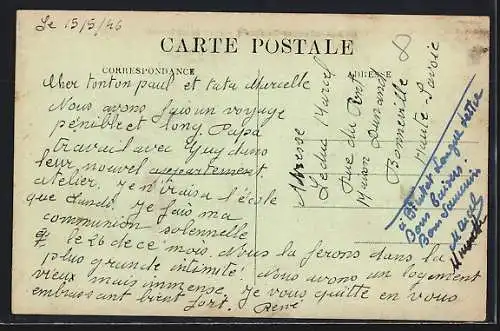 Le 15/5/46
CARTE POSTALE
CORRESPONDANCE
ADRESSE
Cher tonton paul et tata Marcelle
Nous avons fais un voyage
pénible et long. Papa
travail avec Guy dans
leur nouvel appartement
atelier. J'en traisa l'école
que Lundi. Je fais ma
communion solennelle
le 26 de ce mois. Nous la ferons dans la
plus grande intimité! Nous avons un logement
vieux mais immense. Je vous quitte en vous
embrassant bien fort. René
Adresse
Leduc Marcel
Rue du Pont
Maison Durand
Bonneville
Haute-Savoie
à Bientot Longue lettre
Bons Baisers
Bon Souvenir